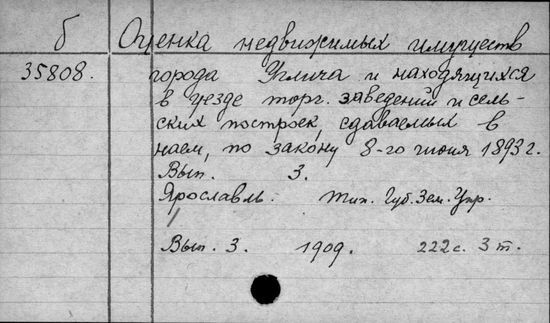 б Оценка недвижимых имуществ
35808. города Углича и находящихся
в уезде торг. заведений и сель-
ских построек, сдаваемых в
наем, по закону 8-го июня 1893 г.
Вып. 3.
Ярославль. Тип. Губ. Зем. Упр.
Вып. 3. 1909. 222 с. 3 т.